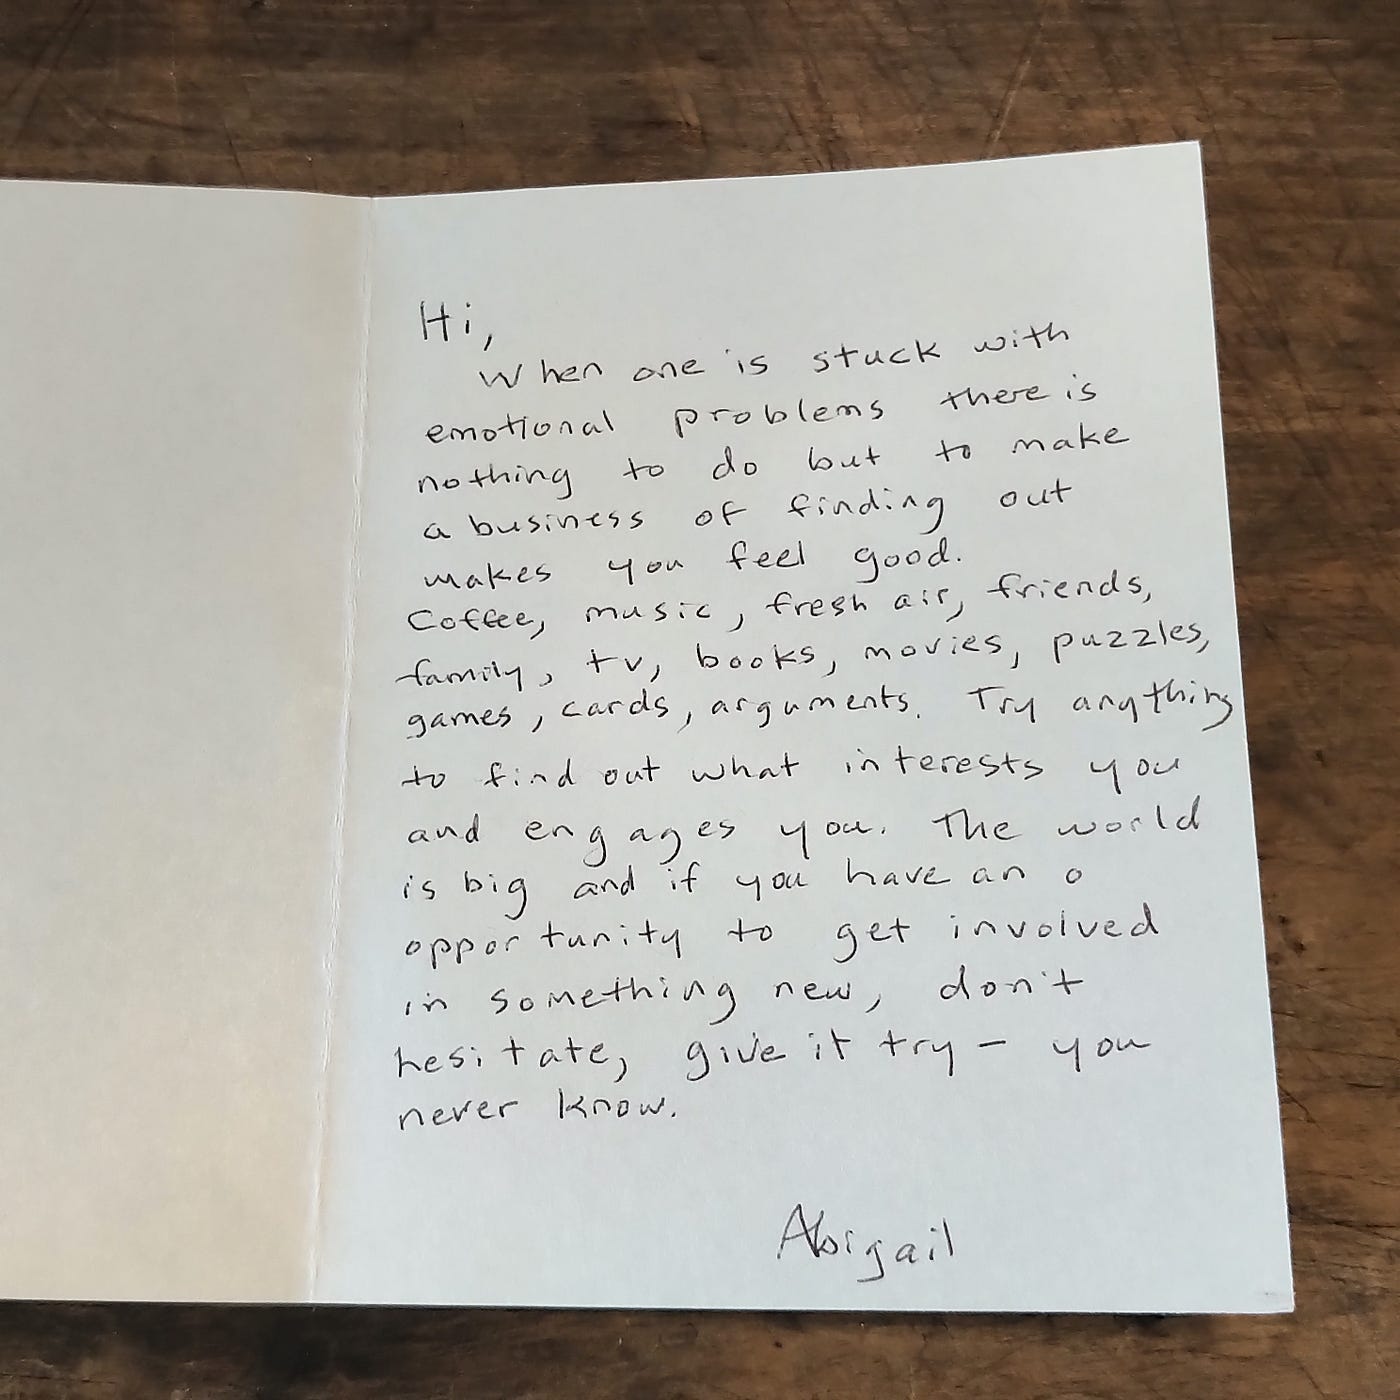 Hi,
When one is stuck with
emotional problems there is
nothing to do but to make
a business of finding out
makes you feel good.
Coffee, music, fresh air, friends,
family, tv, books, movies, puzzles,
games, cards, arguments. Try anything
to find out what interests you
and engages you. The world
is big and if you have an o
opportunity to get involved
in something new, don't
hesitate, give it try - you
never know.
Abigail